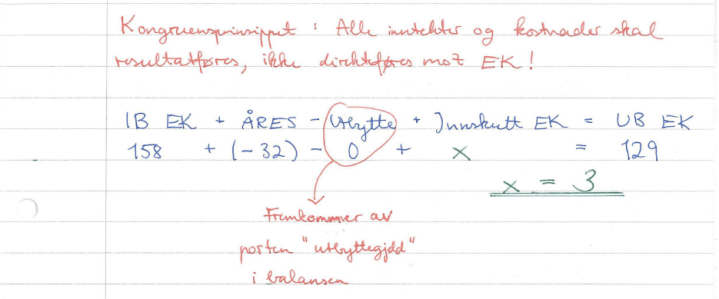 Kongruensprinsippet : Alle inntekter og kostnader skal
resultatføres, ikke direkteføres mot EK!
IB EK + ÅRES - Utbytte + Innskutt EK = UB EK
158 + (-32) - 0 + x = 129
x = 3
Fremkommer av
posten "utbyttegjeld"
i balansen